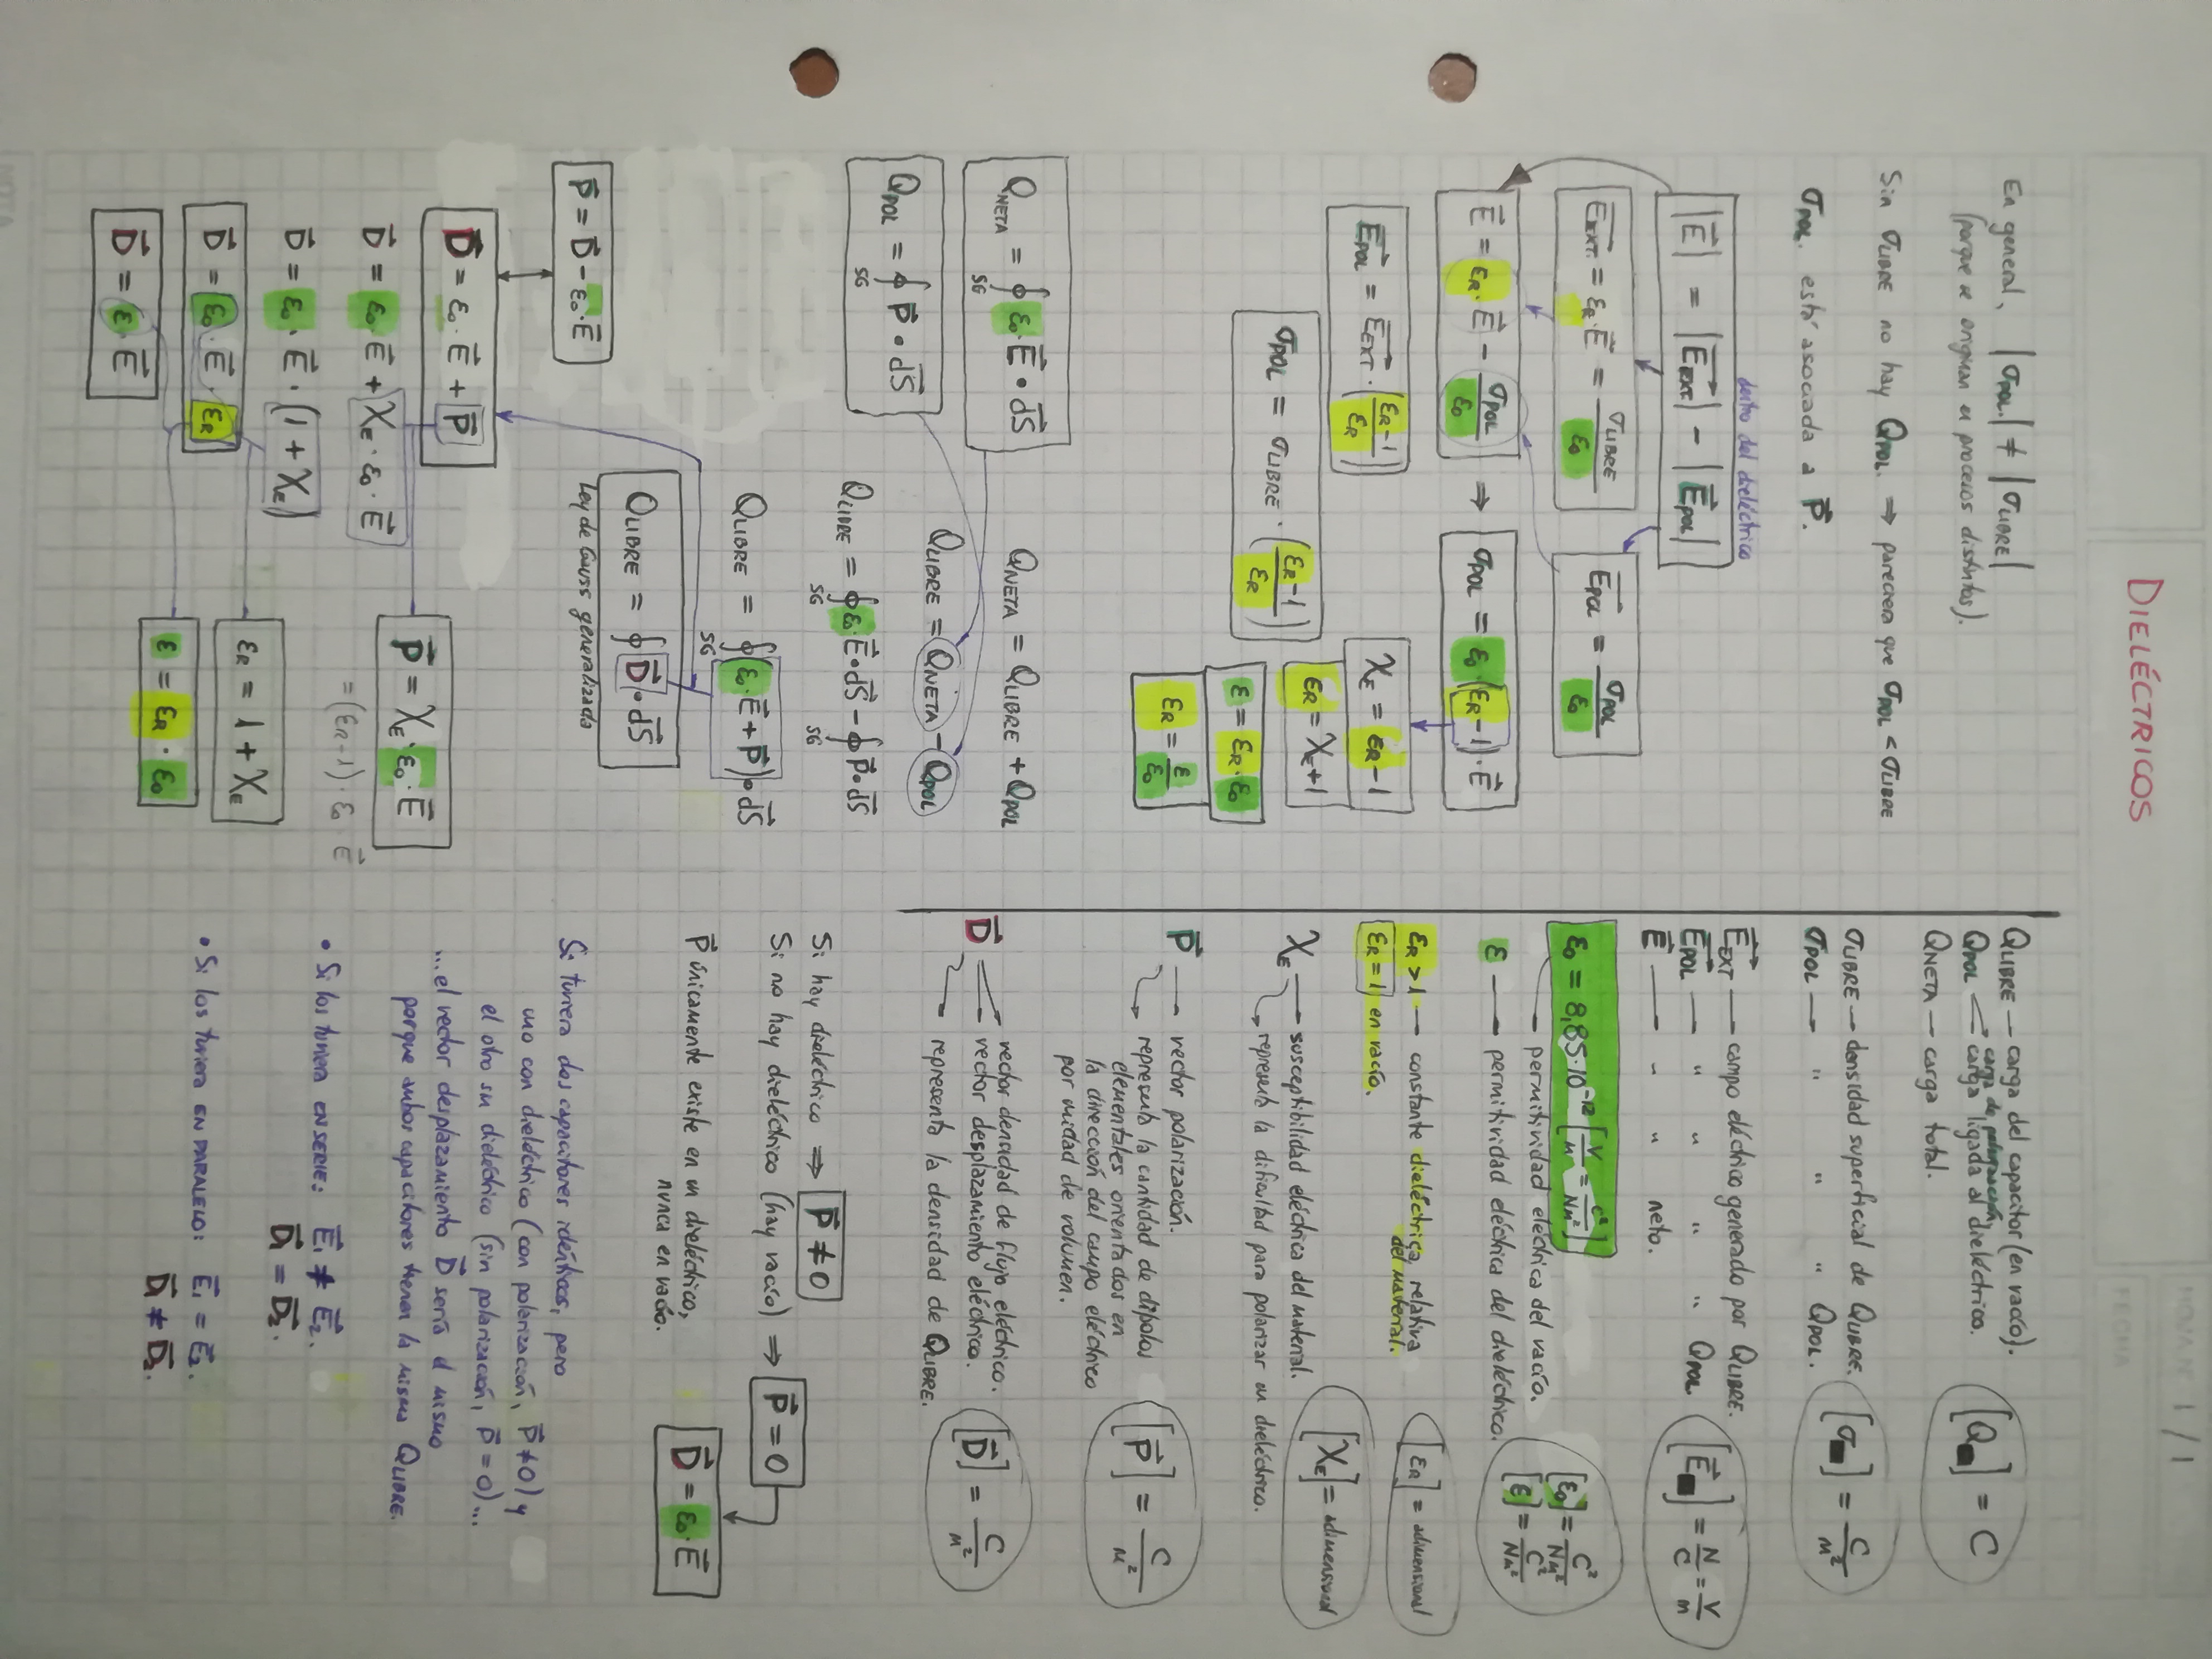 HOJA Nº 1/1
FECHA
DIELÉCTRICOS
En general, |σPOL.| ≠ |σLIBRE|
(porque se originan en procesos distintos).
Sin σLIBRE no hay QPOL. ⇒ pareciera que σPOL < σLIBRE
σPOL. está asociada a P⃗.
dentro del dieléctrico
|E⃗| = |E⃗EXT| - |E⃗POL|
E⃗EXT. = εR·E⃗ = σLIBRE/ε0
E⃗POL = σPOL/ε0
E⃗ = εR·E⃗ - σPOL/ε0 ⇒ σPOL = ε0·(εR-1)·E⃗
E⃗POL = E⃗EXT·((εR-1)/εR)
χE = εR-1
εR = χE+1
σPOL = σLIBRE·((εR-1)/εR)
ε = εR·ε0
εR = ε/ε0
QNETA = ∮SG ε0·E⃗•dS⃗
QNETA = QLIBRE + QPOL
QLIBRE = QNETA - QPOL
QPOL = ∮SG P⃗•dS⃗
QLIBRE = ∮SG ε0·E⃗•dS⃗ - ∮SG P⃗•dS⃗
QLIBRE = ∮SG (ε0·E⃗+P⃗)•dS⃗
QLIBRE = ∮ D⃗•dS⃗
Ley de Gauss generalizada
P⃗ = D⃗-ε0·E⃗
D⃗ = ε0·E⃗ + P⃗
P⃗ = χE·ε0·E⃗
= (εR-1)·ε0·E⃗
D⃗ = ε0·E⃗ + χE·ε0·E⃗
D⃗ = ε0·E⃗·(1+χE)
εR = 1+χE
D⃗ = ε0·E⃗·εR
ε = εR·ε0
D⃗ = ε·E⃗
QLIBRE — carga del capacitor (en vacío).
carga de polarización
QPOL — carga ligada al dieléctrico.
QNETA — carga total.
[Q■] = C
σLIBRE — densidad superficial de QLIBRE.
σPOL — " " " QPOL.
[σ■] = C/m²
E⃗EXT — campo eléctrico generado por QLIBRE.
E⃗POL — " " " " QPOL
E⃗ — " " neto.
[E⃗■] = N/C = V/m
ε0 = 8,85·10⁻¹² [V/m = C²/Nm²]
permitividad eléctrica del vacío.
ε — permitividad eléctrica del dieléctrico.
[ε0] = C²/Nm²
[ε] = C²/Nm²
εR > 1 — constante dieléctrica relativa
del material.
εR = 1 en vacío.
[εR] = adimensional
[χE] = adimensional
χE — susceptibilidad eléctrica del material.
representa la dificultad para polarizar un dieléctrico.
P⃗ — vector polarización.
representa la cantidad de dipolos
elementales orientados en
la dirección del campo eléctrico
por unidad de volumen.
[P⃗] = C/m²
vector densidad de flujo eléctrico.
D⃗ — vector desplazamiento eléctrico.
representa la densidad de QLIBRE.
[D⃗] = C/m²
Si hay dieléctrico ⇒ P⃗ ≠ 0
Si no hay dieléctrico (hay vacío) ⇒ P⃗ = 0
D⃗ = ε0·E⃗
P⃗ únicamente existe en un dieléctrico,
nunca en vacío.
Si tuviera dos capacitores idénticos, pero
uno con dieléctrico (con polarización, P⃗ ≠ 0) y
el otro sin dieléctrico (sin polarización, P⃗ = 0)...
...el vector desplazamiento D⃗ sería el mismo
porque ambos capacitores tienen la misma QLIBRE.
• Si los tuviera EN SERIE: E⃗1 ≠ E⃗2.
D⃗1 = D⃗2.
• Si los tuviera EN PARALELO: E⃗1 = E⃗2.
D⃗1 ≠ D⃗2.
NOTA